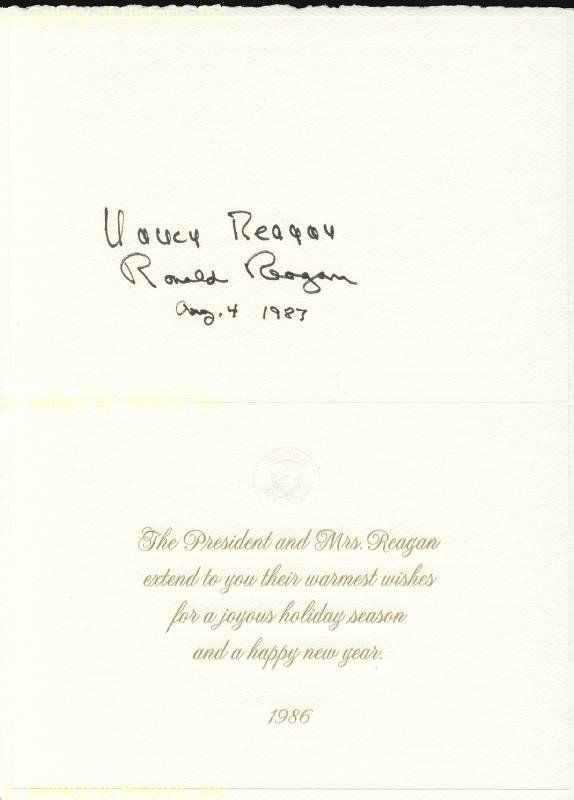 © Gallery of History, Inc.
Nancy Reagan
Ronald Reagan
Aug. 4 1987
© Gallery of History, Inc.
The President and Mrs. Reagan
extend to you their warmest wishes
for a joyous holiday season
and a happy new year.
1986
© Gallery of History, Inc.